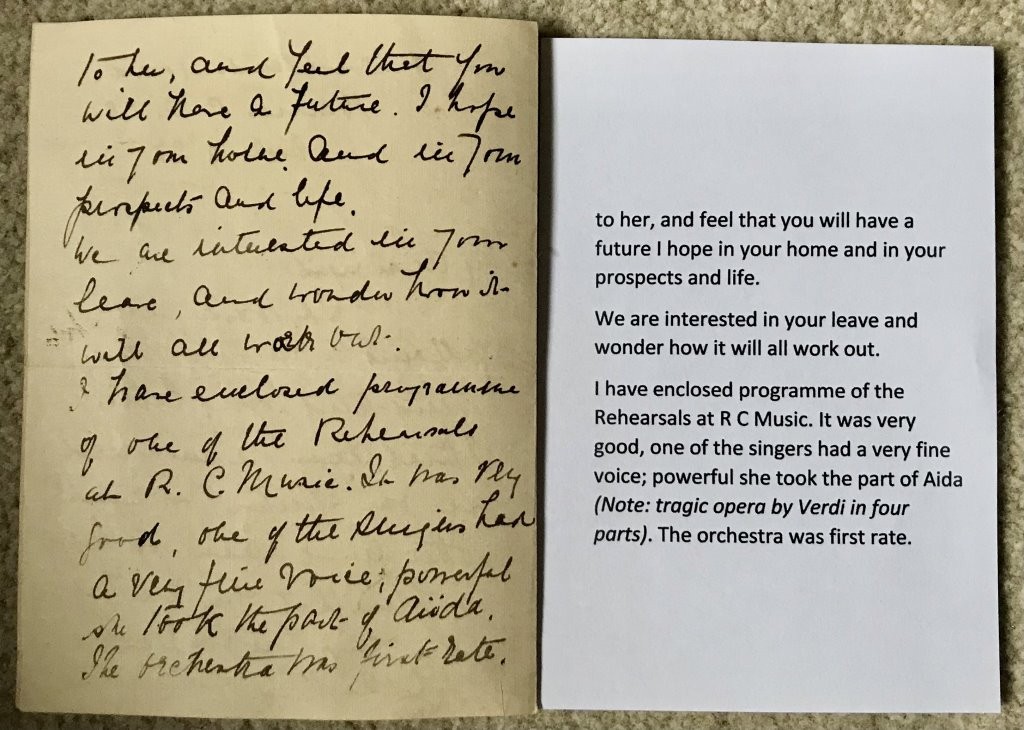 to her, and feel that you
will have a future. I hope
in your home and in your
prospects and life.
We are interested in your
leave, and wonder how it
will all work out.
I have enclosed programme
of one of the Rehearsals
at R. C Music. It was very
good, one of the singers had
a very fine voice; powerful
she took the part of Aïda.
The orchestra was first rate.
to her, and feel that you will have a
future I hope in your home and in your
prospects and life.
We are interested in your leave and
wonder how it will all work out.
I have enclosed programme of the
Rehearsals at R C Music. It was very
good, one of the singers had a very fine
voice; powerful she took the part of Aida
(Note: tragic opera by Verdi in four
parts). The orchestra was first rate.